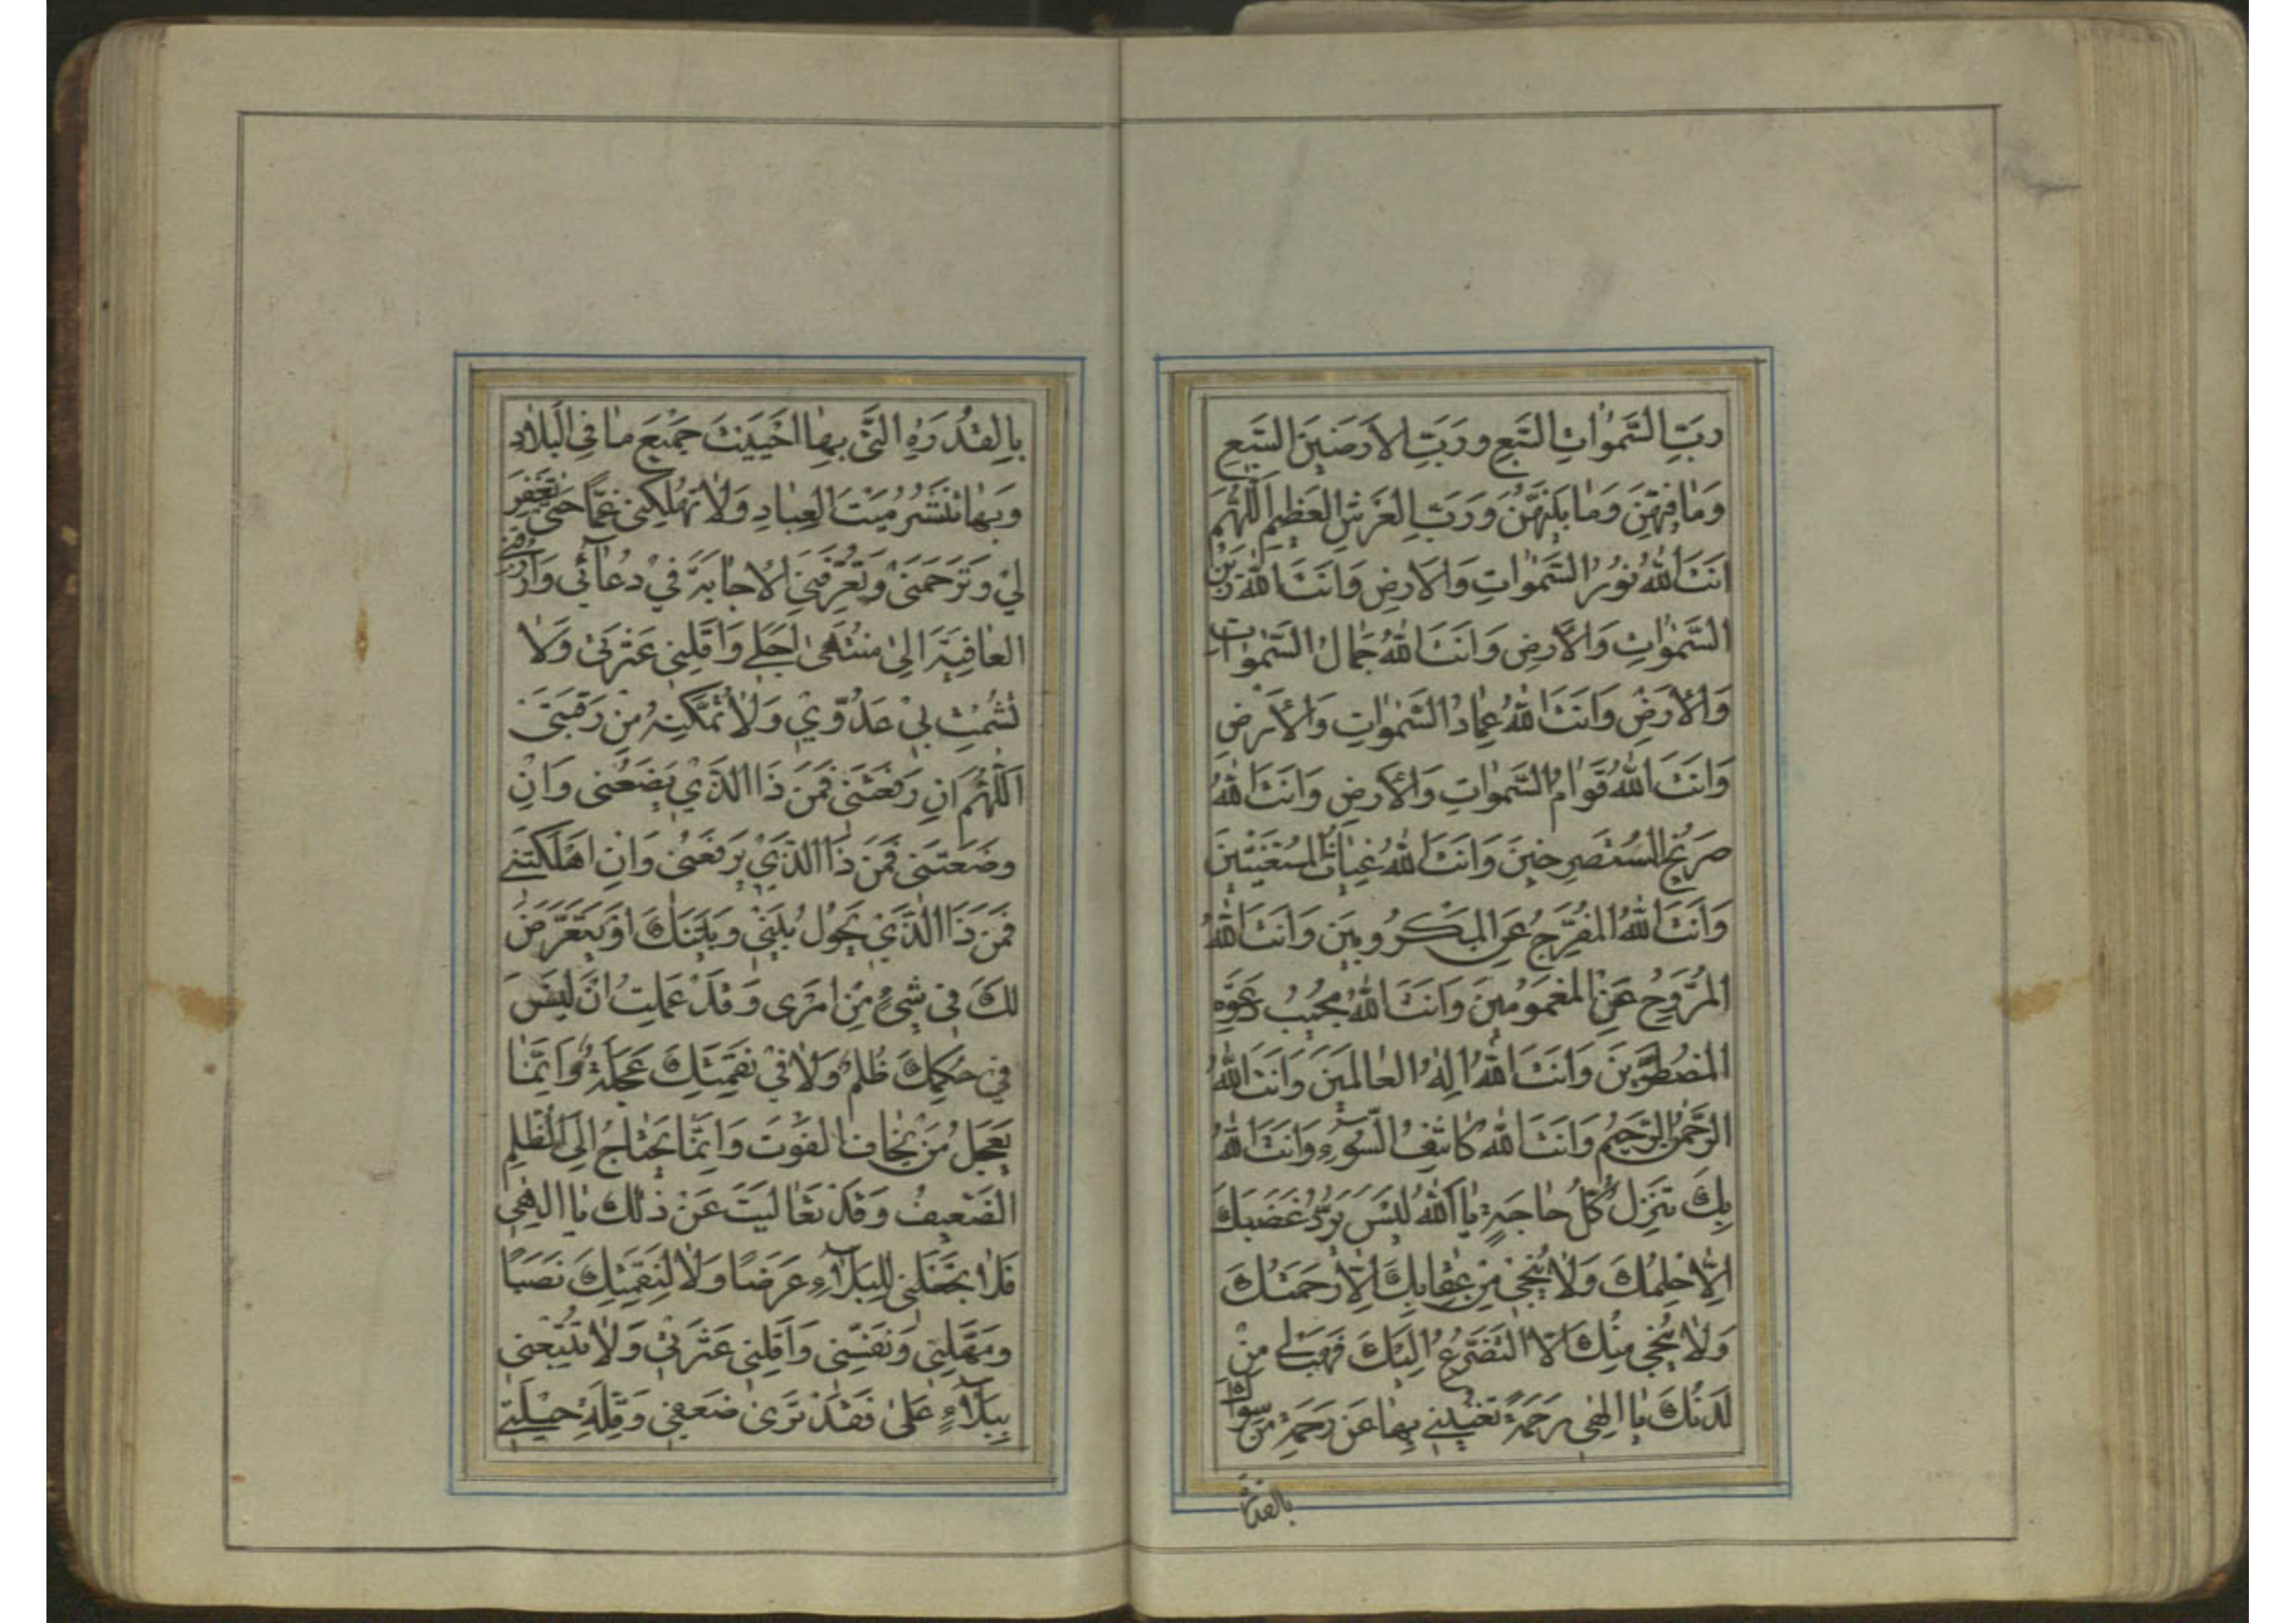 رَبَّ السَّمٰوَاتِ السَّبْعِ وَرَبَّ الْاَرَضِينَ السَّبْعِ
وَمَا فِيهِنَّ وَمَا بَيْنَهُنَّ وَرَبَّ الْعَرْشِ الْعَظِيمِ اَللّٰهُمَّ
اَنْتَ اللّٰهُ نُورُ السَّمٰوَاتِ وَالْاَرْضِ وَاَنْتَ اللّٰهُ زَيْنُ
السَّمٰوَاتِ وَالْاَرْضِ وَاَنْتَ اللّٰهُ جَمَالُ السَّمٰوَات
وَالْاَرْضِ وَاَنْتَ اللّٰهُ عِمَادُ السَّمٰوَاتِ وَالْاَرْضِ
وَاَنْتَ اللّٰهُ قَوَامُ السَّمٰوَاتِ وَالْاَرْضِ وَاَنْتَ اللّٰهُ
صَرِيخُ الْمُسْتَصْرِخِينَ وَاَنْتَ اللّٰهُ غِيَاثُ الْمُسْتَغِيثِينَ
وَاَنْتَ اللّٰهُ الْمُفَرِّجُ عَنِ الْمَكْرُوبِينَ وَاَنْتَ اللّٰهُ
الْمُرَوِّحُ عَنِ الْمَغْمُومِينَ وَاَنْتَ اللّٰهُ مُجِيبُ دَعْوَةِ
الْمُضْطَرِّينَ وَاَنْتَ اللّٰهُ اِلٰهُ الْعَالَمِينَ وَاَنْتَ اللّٰهُ
الرَّحْمٰنُ الرَّحِيمُ وَاَنْتَ اللّٰهُ كَاشِفُ السُّوءِ وَاَنْتَ اللّٰهُ
بِكَ تُنْزَلُ كُلُّ حَاجَةٍ يَا اَللّٰهُ لَيْسَ يَرُدُّ غَضَبَكَ
اِلَّا حِلْمُكَ وَلَا يُنْجِي مِنْ عِقَابِكَ اِلَّا رَحْمَتُكَ
وَلَا يُنْجِي مِنْكَ اِلَّا التَّضَرُّعُ اِلَيْكَ فَهَبْ لِي مِنْ
لَدُنْكَ يَا اِلٰهِي رَحْمَةً تُغْنِينِي بِهَا عَنْ رَحْمَةِ مَنْ سِوَاكَ
بالقدرة
بِالْقُدْرَةِ الَّتِي بِهَا اَحْيَيْتَ جَمِيعَ مَا فِي الْبِلَادِ
وَبِهَا تَنْشُرُ مَيْتَ الْعِبَادِ وَلَا تُهْلِكْنِي غَمًّا حَتّٰى تَغْفِرَ
لِي وَتَرْحَمَنِي وَتُعَرِّفَنِي الْاِجَابَةَ فِي دُعَائِي وَارْزُقْنِي
الْعَافِيَةَ اِلَى مُنْتَهٰى اَجَلِي وَاَقِلْنِي عَثْرَتِي وَلَا
تُشْمِتْ بِي عَدُوِّي وَلَا تُمَكِّنْهُ مِنْ رَقَبَتِي
اَللّٰهُمَّ اِنْ رَفَعْتَنِي فَمَنْ ذَا الَّذِي يَضَعُنِي وَاِنْ
وَضَعْتَنِي فَمَنْ ذَا الَّذِي يَرْفَعُنِي وَاِنْ اَهْلَكْتَنِي
فَمَنْ ذَا الَّذِي يَحُولُ بَيْنِي وَبَيْنَكَ اَوْ يَتَعَرَّضُ
لَكَ فِي شَيْءٍ مِنْ اَمْرِي وَقَدْ عَلِمْتُ اَنْ لَيْسَ
فِي حُكْمِكَ ظُلْمٌ وَلَا فِي نَقِمَتِكَ عَجَلَةٌ وَاِنَّمَا
يَعْجَلُ مَنْ يَخَافُ الْفَوْتَ وَاِنَّمَا يَحْتَاجُ اِلَى الظُّلْمِ
الضَّعِيفُ وَقَدْ تَعَالَيْتَ عَنْ ذٰلِكَ يَا اِلٰهِي
فَلَا تَجْعَلْنِي لِلْبَلَاءِ عَرَضًا وَلَا لِنَقِمَتِكَ نَصَبًا
وَمَهِّلْنِي وَنَفِّسْنِي وَاَقِلْنِي عَثْرَتِي وَلَا تُتْبِعْنِي
بِبَلَاءٍ عَلٰى فَقَدْ تَرٰى ضَعْفِي وَقِلَّةَ حِيلَتِي